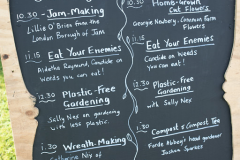 10.30 - Jam-Making
Lillie O'Brien from the
London Borough of Jam
11.15 Eat Your Enemies
Aidetha Raymond, Candide on
weeds you can eat!
12.30 - Plastic-Free
Gardening
Sally Nex on gardening
with less plastic.
1.30 Wreath-Making
Nex of
Home-Grown
Cut Flowers
Georgie Newbery, Common Farm
Flowers
11.15 Eat Your Enemies
Candide on Weeds
you can eat!
12.30 Plastic-Free
Gardening
with Sally Nex
1.30
Compost & Compost Tea
Forde Abbey's head gardener
Joshua Sparkes